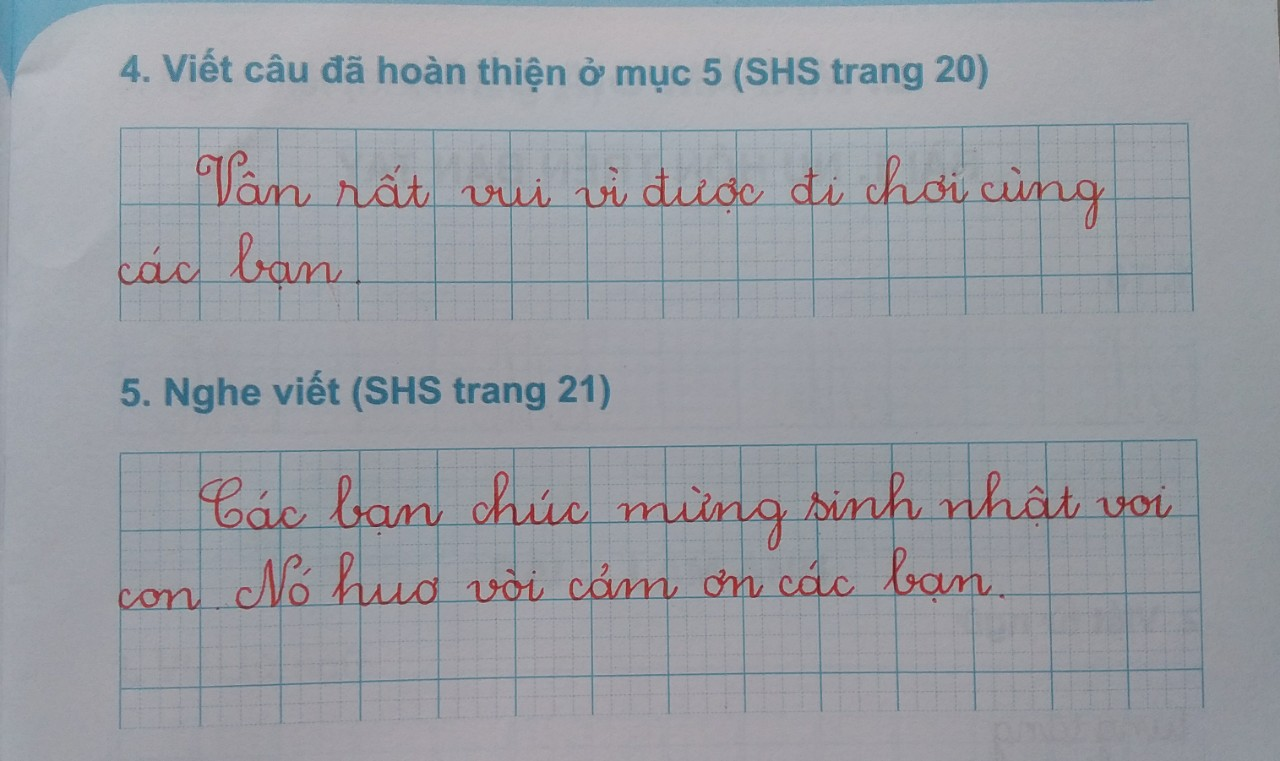 4. Viết câu đã hoàn thiện ở mục 5 (SHS trang 20)
Vân rất vui vì được đi chơi cùng
các bạn.
5. Nghe viết (SHS trang 21)
Các bạn chúc mừng sinh nhật voi
con. Nó huơ vòi cảm ơn các bạn.